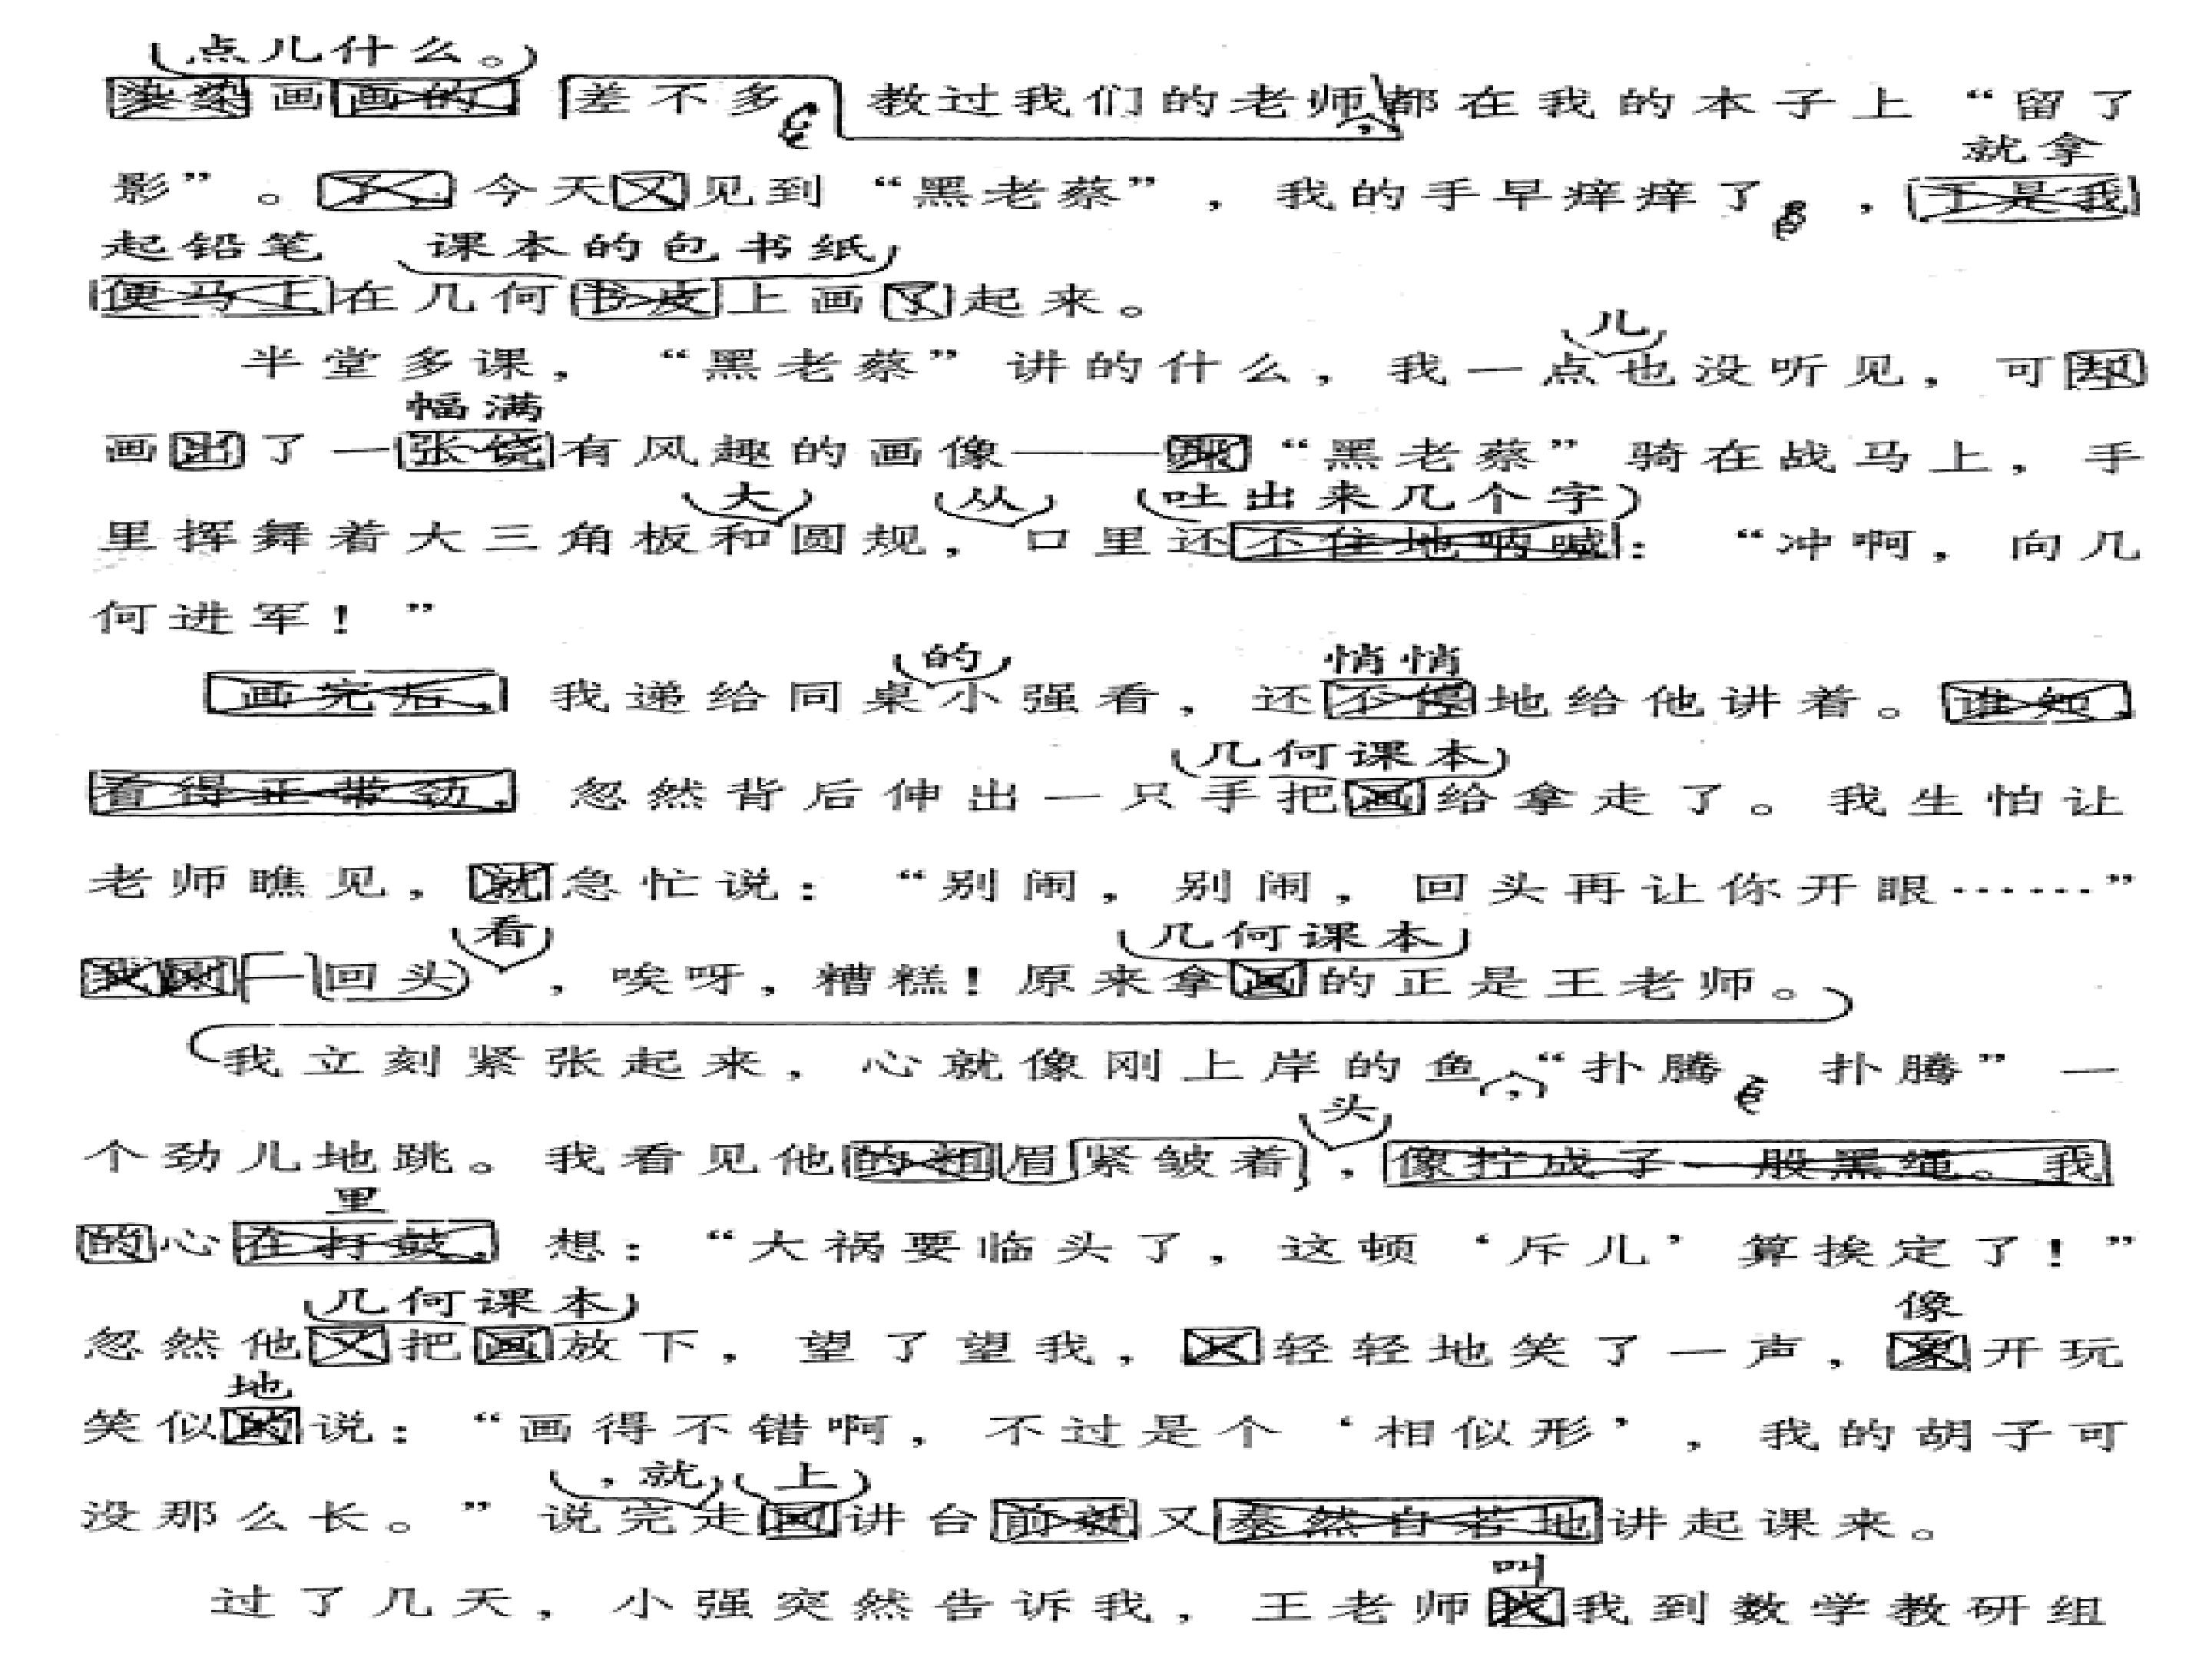 点儿什么。
染染画画的，差不多教过我们的老师，都在我的本子上“留了
就拿
影”。了，今天又见到“黑老蔡”，我的手早痒痒了，于是我
起铅笔 课本的包书纸
便马上在几何书皮上画了起来。
儿
半堂多课，“黑老蔡”讲的什么，我一点也没听见，可却
幅满
画出了一张饶有风趣的画像——那“黑老蔡”骑在战马上，手
大 从 吐出来几个字
里挥舞着大三角板和圆规，口里还不住地呐喊：“冲啊，向几
何进军！”
的 悄悄
画完后，我递给同桌小强看，还不停地给他讲着。谁知，
几何课本
看得正带劲，忽然背后伸出一只手把画给拿走了。我生怕让
老师瞧见，就急忙说：“别闹，别闹，回头再让你开眼……”
看 几何课本
一回头，唉呀，糟糕！原来拿画的正是王老师。
我立刻紧张起来，心就像刚上岸的鱼，“扑腾、扑腾”一
头
个劲儿地跳。我看见他的粗眉紧皱着，像拧成了一股黑绳。我
里
的心在打鼓，想：“大祸要临头了，这顿‘斥儿’算挨定了！”
几何课本 像
忽然他又把画放下，望了望我，又轻轻地笑了一声，象开玩
地
笑似的说：“画得不错啊，不过是个‘相似形’，我的胡子可
，就 上
没那么长。”说完走回讲台前就又泰然自若地讲起课来。
叫
过了几天，小强突然告诉我，王老师找我到数学教研组